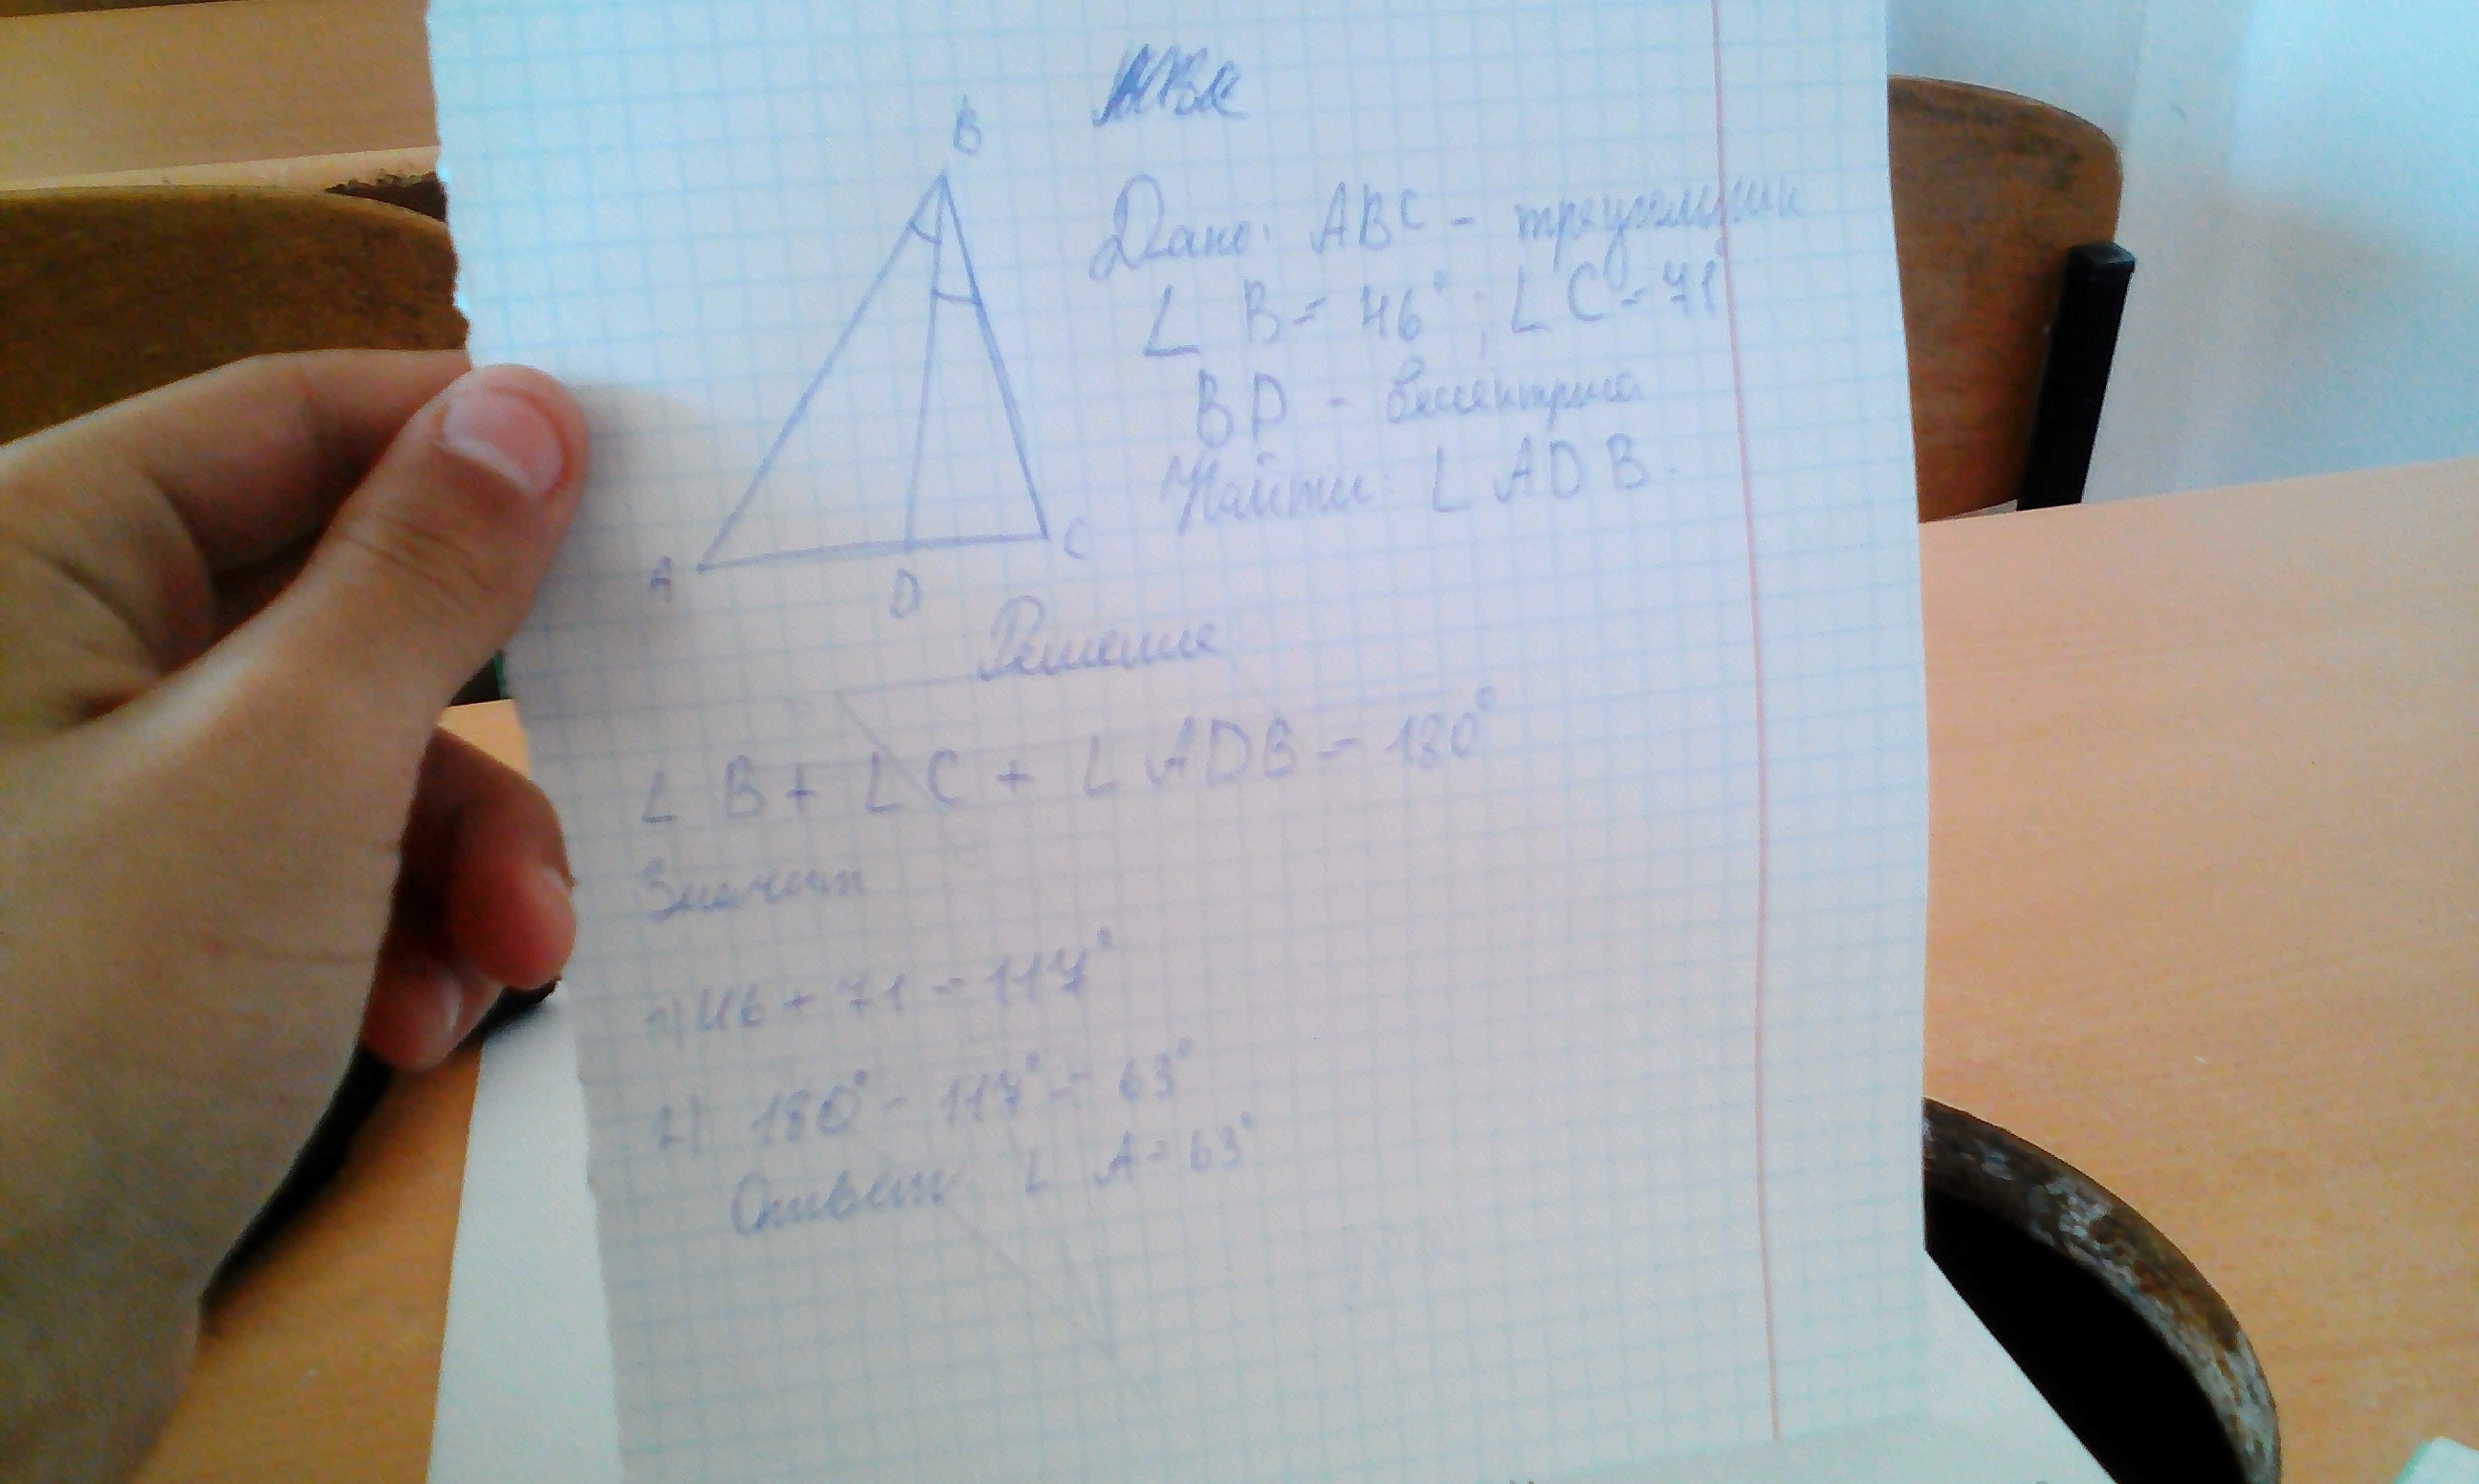 B
A
D
C
Дано: ABC - треугольник
∠ B = 46° ; ∠ C = 71°
BD - биссектриса
Найти: ∠ ADB.
Решение
∠ B + ∠ C + ∠ ADB = 180°
Значит
1) 46 + 71 = 117°
2) 180° - 117° = 63°
Ответ ∠ A = 63°